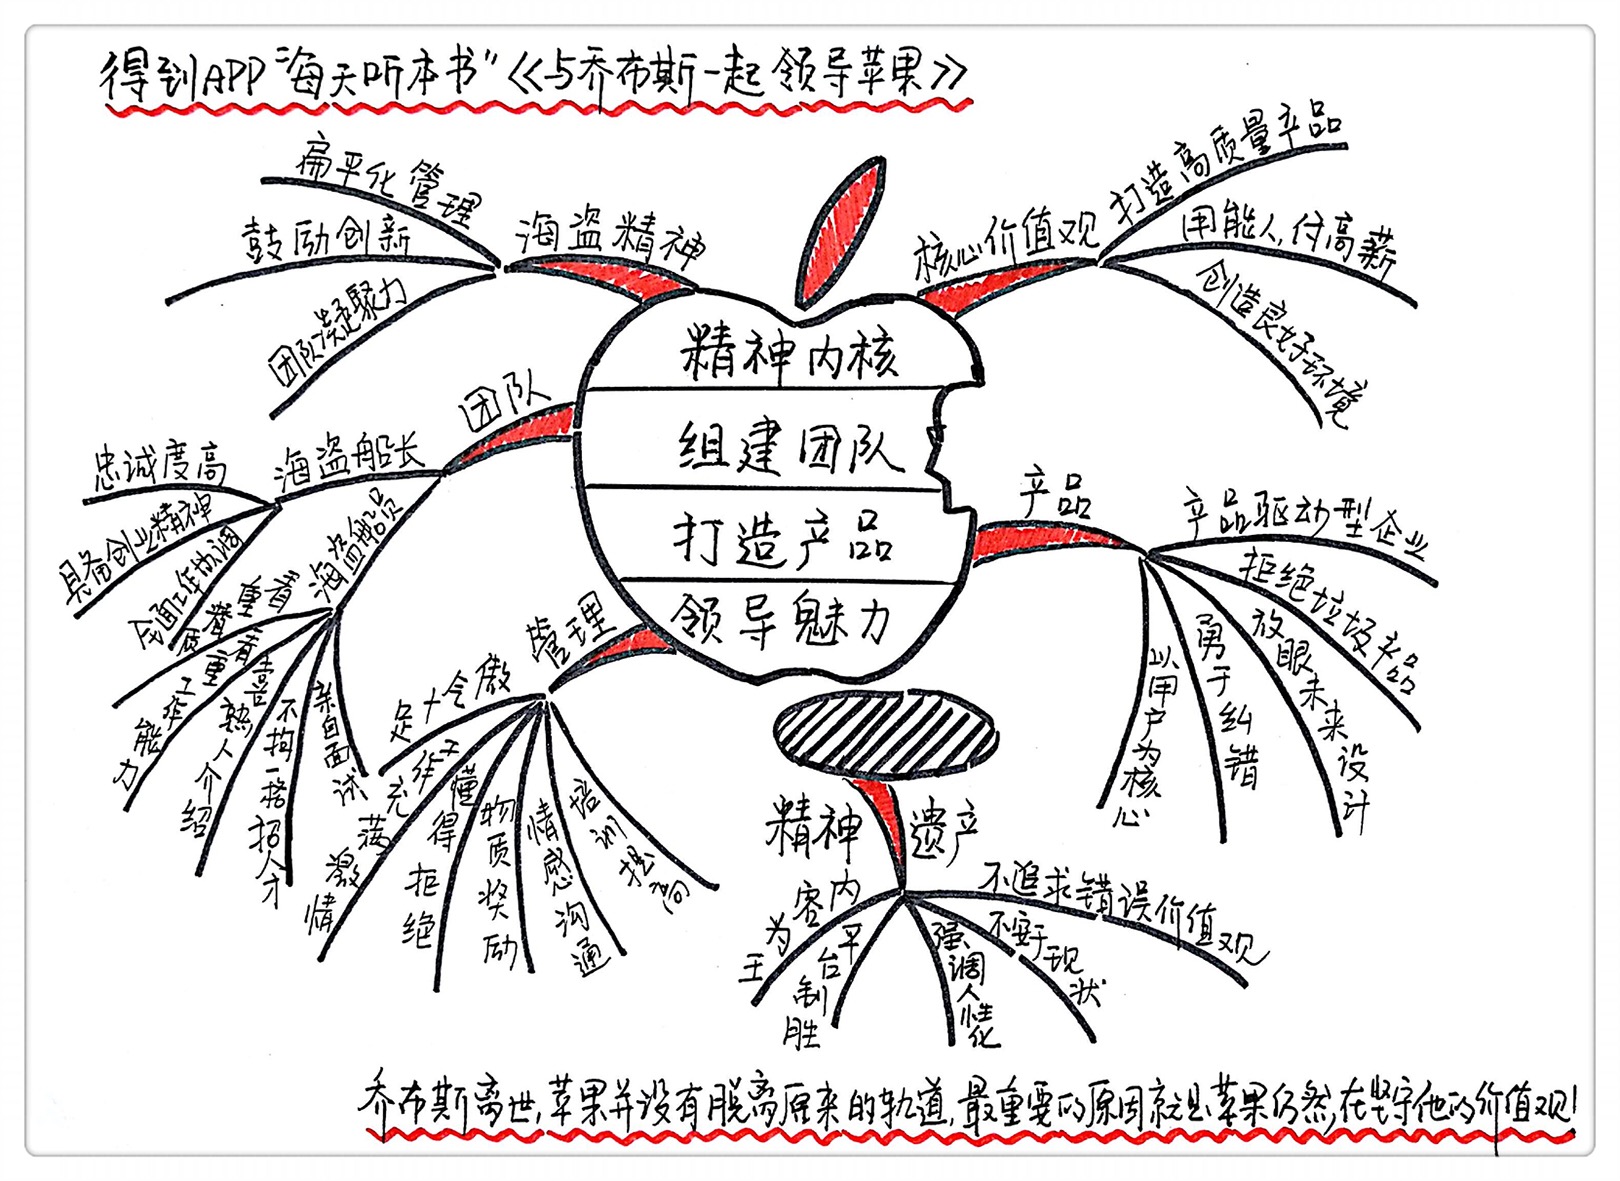 得到APP“每天听本书”《与乔布斯一起领导苹果》
精神内核
组建团队
打造产品
领导魅力
海盗精神
扁平化管理
鼓励创新
团队凝聚力
核心价值观
打造高质量产品
用能人,付高薪
创造良好环境
团队
海盗船长
忠诚度高
具备创业精神
全面工作协调
海盗船员
看重潜质
看重工作能力
喜熟人介绍
不拘一格招人才
亲自面试
产品
产品驱动型企业
拒绝垃圾产品
放眼未来设计
勇于纠错
以用户为核心
管理
傲令十足
工作充满激情
懂得拒绝
物质奖励
情感沟通
培训提高
精神遗产
内容为王
平台制胜
强调人性化
不安于现状
不追求错误价值观
乔布斯离世,苹果并没有脱离原来的轨道,最重要的原因就是苹果仍然在坚守他的价值观!